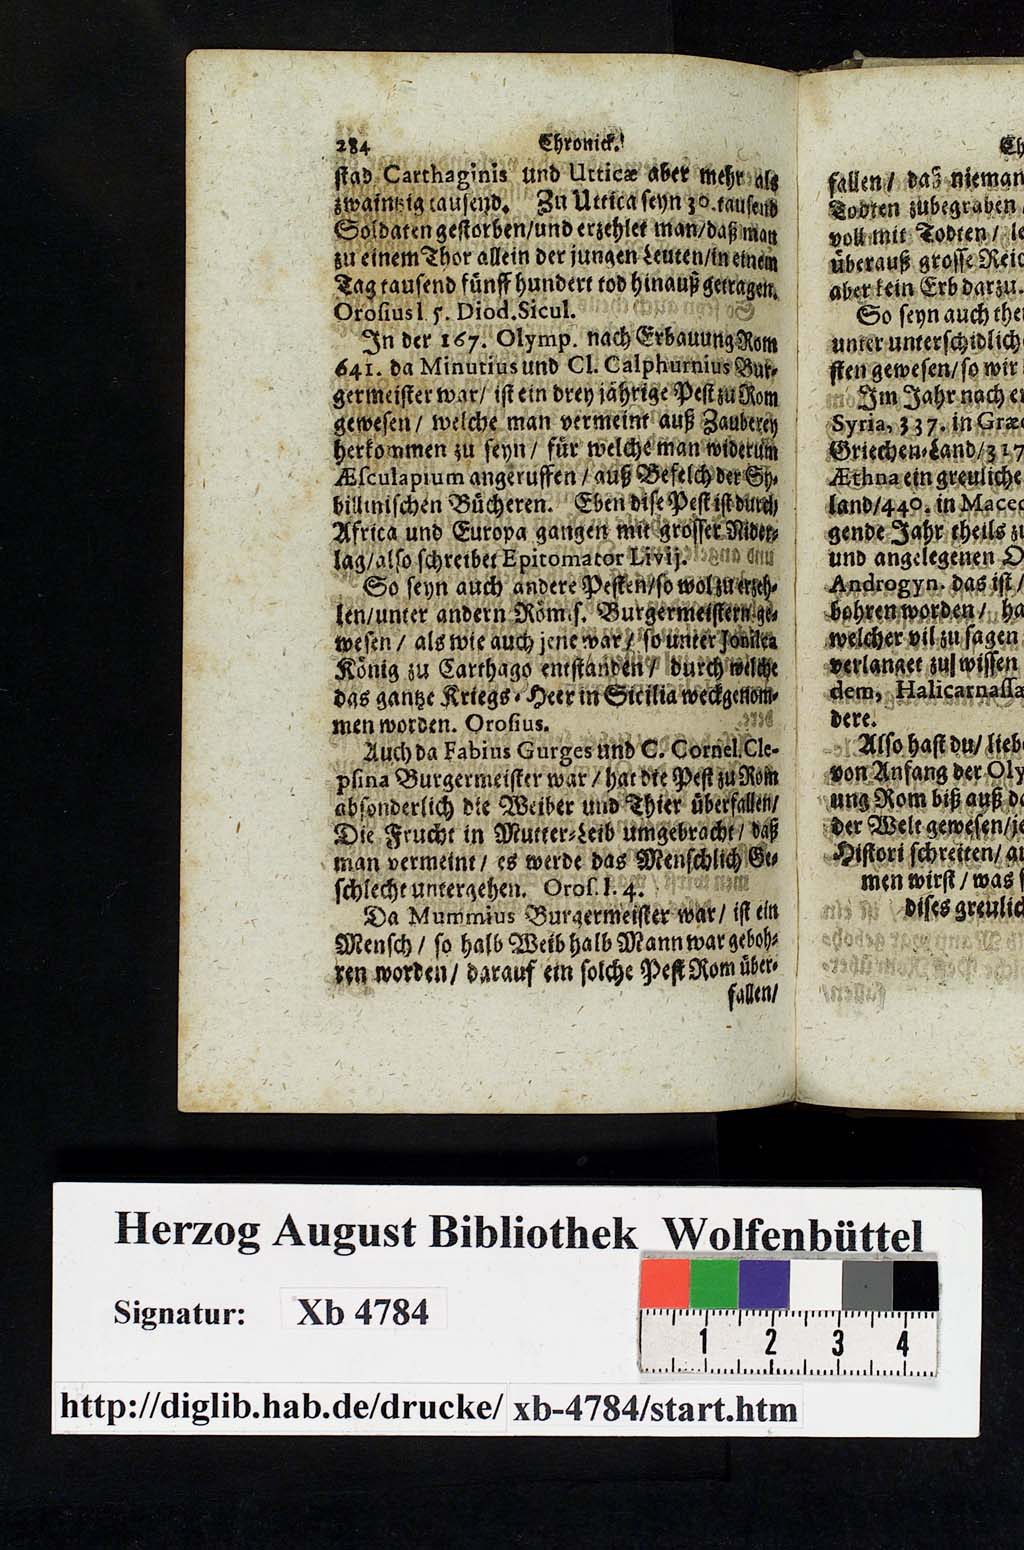 284 Chronick.
stad Carthaginis und Utticæ aber mehr als
zwaintzig tausend. Zu Uttica seyn 30. tausend
Soldaten gestorben/und erzehlet man/daß man
zu einem Thor allein der jungen Leuten/in einem
Tag tausend fünff hundert tod hinauß getragen.
Orosius l 5. Diod. Sicul.
In der 167. Olymp. nach Erbauung Rom
641. da Minutius und Cl. Calphurnius Bur-
germeister war/ ist ein drey jährige Pest zu Rom
gewesen/ welche man vermeint auß Zauberey
herkommen zu seyn/ für welche man widerum
Æsculapium angeruffen/ auß Befelch der Sy-
billinischen Bücheren. Eben dise Pest ist durch
Africa und Europa gangen mit grosser Nider-
lag/also schreibet Epitomator Livij.
So seyn auch andere Pesten/so wol zu erzeh-
len/unter andern Röm. Burgermeistern ge-
wesen/ als wie auch jene war/ so unter
König zu Carthago entstanden/ durch welche
das gantze Kriegs-Heer in Sicilia weckgenom-
men worden. Orosius.
Auch da Fabius Gurges und C. Cornel. Cle-
psina Burgermeister war/ hat die Pest zu Rom
absonderlich die Weiber und Thier überfallen/
Die Frucht in Mutter-Leib umgebracht/ daß
man vermeint/ es werde das Menschlich Ge-
schlecht untergehen. Oros. l. 4.
Da Mummius Burgermeister war/ ist ein
Mensch/ so halb Weib halb Mann war geboh-
ren worden/ darauf ein solche Pest Rom über-
fallen/
fallen/ daß nieman
Todten zubegraben
voll mit Todten/ le
überauß grosse Reic
aber kein Erb darzu.
So seyn auch the
unter unterschidlich
sten gewesen/ so wir
Im Jahr nach e
Syria, 337. in Græc
Griechen-Land/317
Æthna ein greuliche
land/440. in Maced
gende Jahr theils zu
und angelegenen O
Androgyn. das ist/
bohren worden/ ha
welcher vil zu sagen
verlanget zu wissen
dem, Halicarnassæ
dere.
Also hast du/ liebe
von Anfang der Oly
ung Rom biß auß da
der Welt gewesen/je
Histori schreiten/ au
men wirst/ was s
dises greulich
Herzog August Bibliothek Wolfenbüttel
Signatur: Xb 4784
1 2 3 4
http://diglib.hab.de/drucke/ xb-4784/start.htm